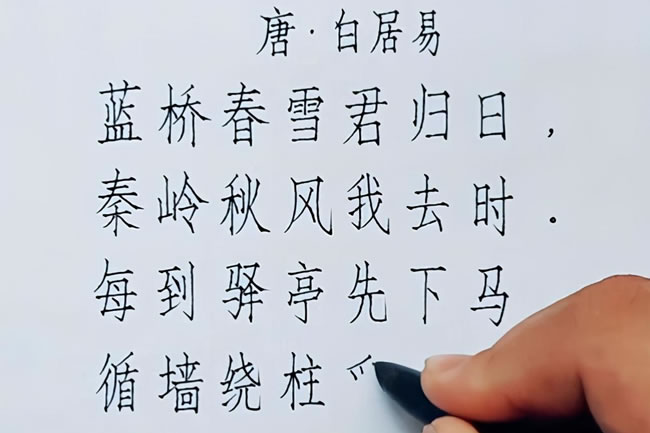 唐·白居易
蓝桥春雪君归日，
秦岭秋风我去时.
每到驿亭先下马
循墙绕柱